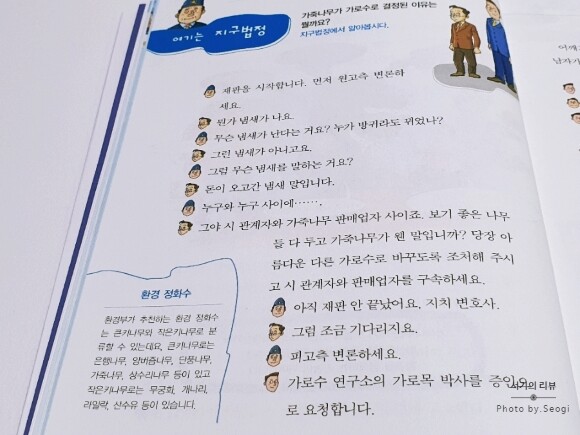 여기는 지구법정
가죽나무가 가로수로 결정된 이유는
뭘까요?
지구법정에서 알아봅시다.
재판을 시작합니다. 먼저 원고측 변론하
세요.
뭔가 냄새가 나요.
무슨 냄새가 난다는 거요? 누가 방귀라도 뀌었나?
그런 냄새가 아니고요.
그럼 무슨 냄새를 말하는 거요?
돈이 오고간 냄새 말입니다.
누구와 누구 사이에…….
그야 시 관계자와 가죽나무 판매업자 사이죠. 보기 좋은 나무
들 다 두고 가죽나무가 웬 말입니까? 당장 아
름다운 다른 가로수로 바꾸도록 조치해 주시
고 시 관계자와 판매업자를 구속하세요.
아직 재판 안 끝났어요, 지치 변호사.
그럼 조금 기다리지요.
피고측 변론하세요.
가로수 연구소의 가로목 박사를 증인으
로 요청합니다.
환경 정화수
환경부가 추천하는 환경 정화수
는 큰키나무와 작은키나무로 분
류할 수 있는데요, 큰키나무로는
은행나무, 양버즘나무, 단풍나무,
가죽나무, 상수리나무 등이 있고
작은키나무로는 무궁화, 개나리,
라일락, 산수유 등이 있습니다.
어깨
남자가
서기의 리뷰
Photo by.Seogi